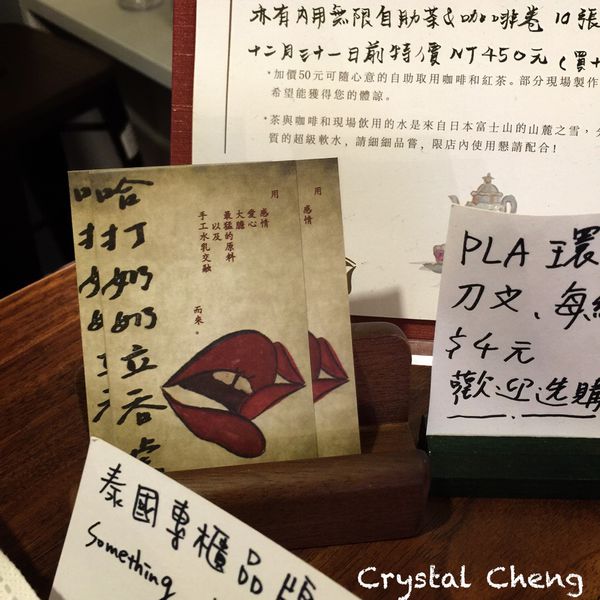 亦有內用無限自助茶&咖啡卷 10張
十二月三十一日前特價 NT450元 (買十
*加價50元可隨心意的自助取用咖啡和紅茶。部分現場製作
希望能獲得您的體諒。
*茶與咖啡和現場飲用的水是來自日本富士山的山麓之雪，
質的超級軟水，請細細品嘗，限店內使用懇請配合！
哈打奶奶立吞處
用
感情
愛心
大膽
最猛的原料
以及
手工水乳交融
而來。
用
感情
PLA 環
刀叉、每組
$4元
歡迎選購
泰國專櫃品牌
Something
Crystal Cheng